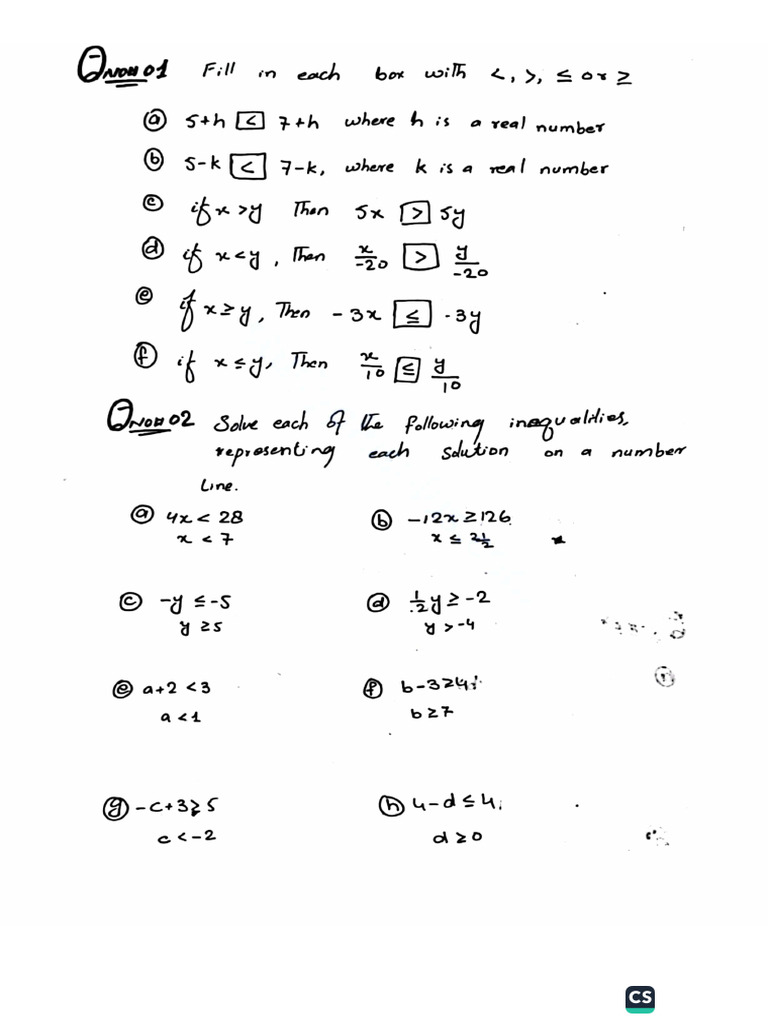 QNO# 01 Fill in each box with <, >, ≤ or ≥
(a) 5+h [<] 7+h where h is a real number
(b) 5-k [<] 7-k, where k is a real number
(c) if x>y Then 5x [>] 5y
(d) if x<y, Then x/-20 [>] y/-20
(e) if x≥y, Then -3x [≤] -3y
(f) if x≤y, Then x/10 [≤] y/10
QNO# 02 Solve each of the following inequalities,
representing each solution on a number
Line.
(a) 4x < 28 (b) -12x ≥ 126
x < 7 x ≤ 21/2
(c) -y ≤ -5 (d) 1/2 y ≥ -2
y ≥ 5 y > -4
(e) a+2 < 3 (f) b-3 ≥ 4
a < 1 b ≥ 7
(g) -c+3 ≥ 5 (h) 4-d ≤ 4
c < -2 d ≥ 0
CS